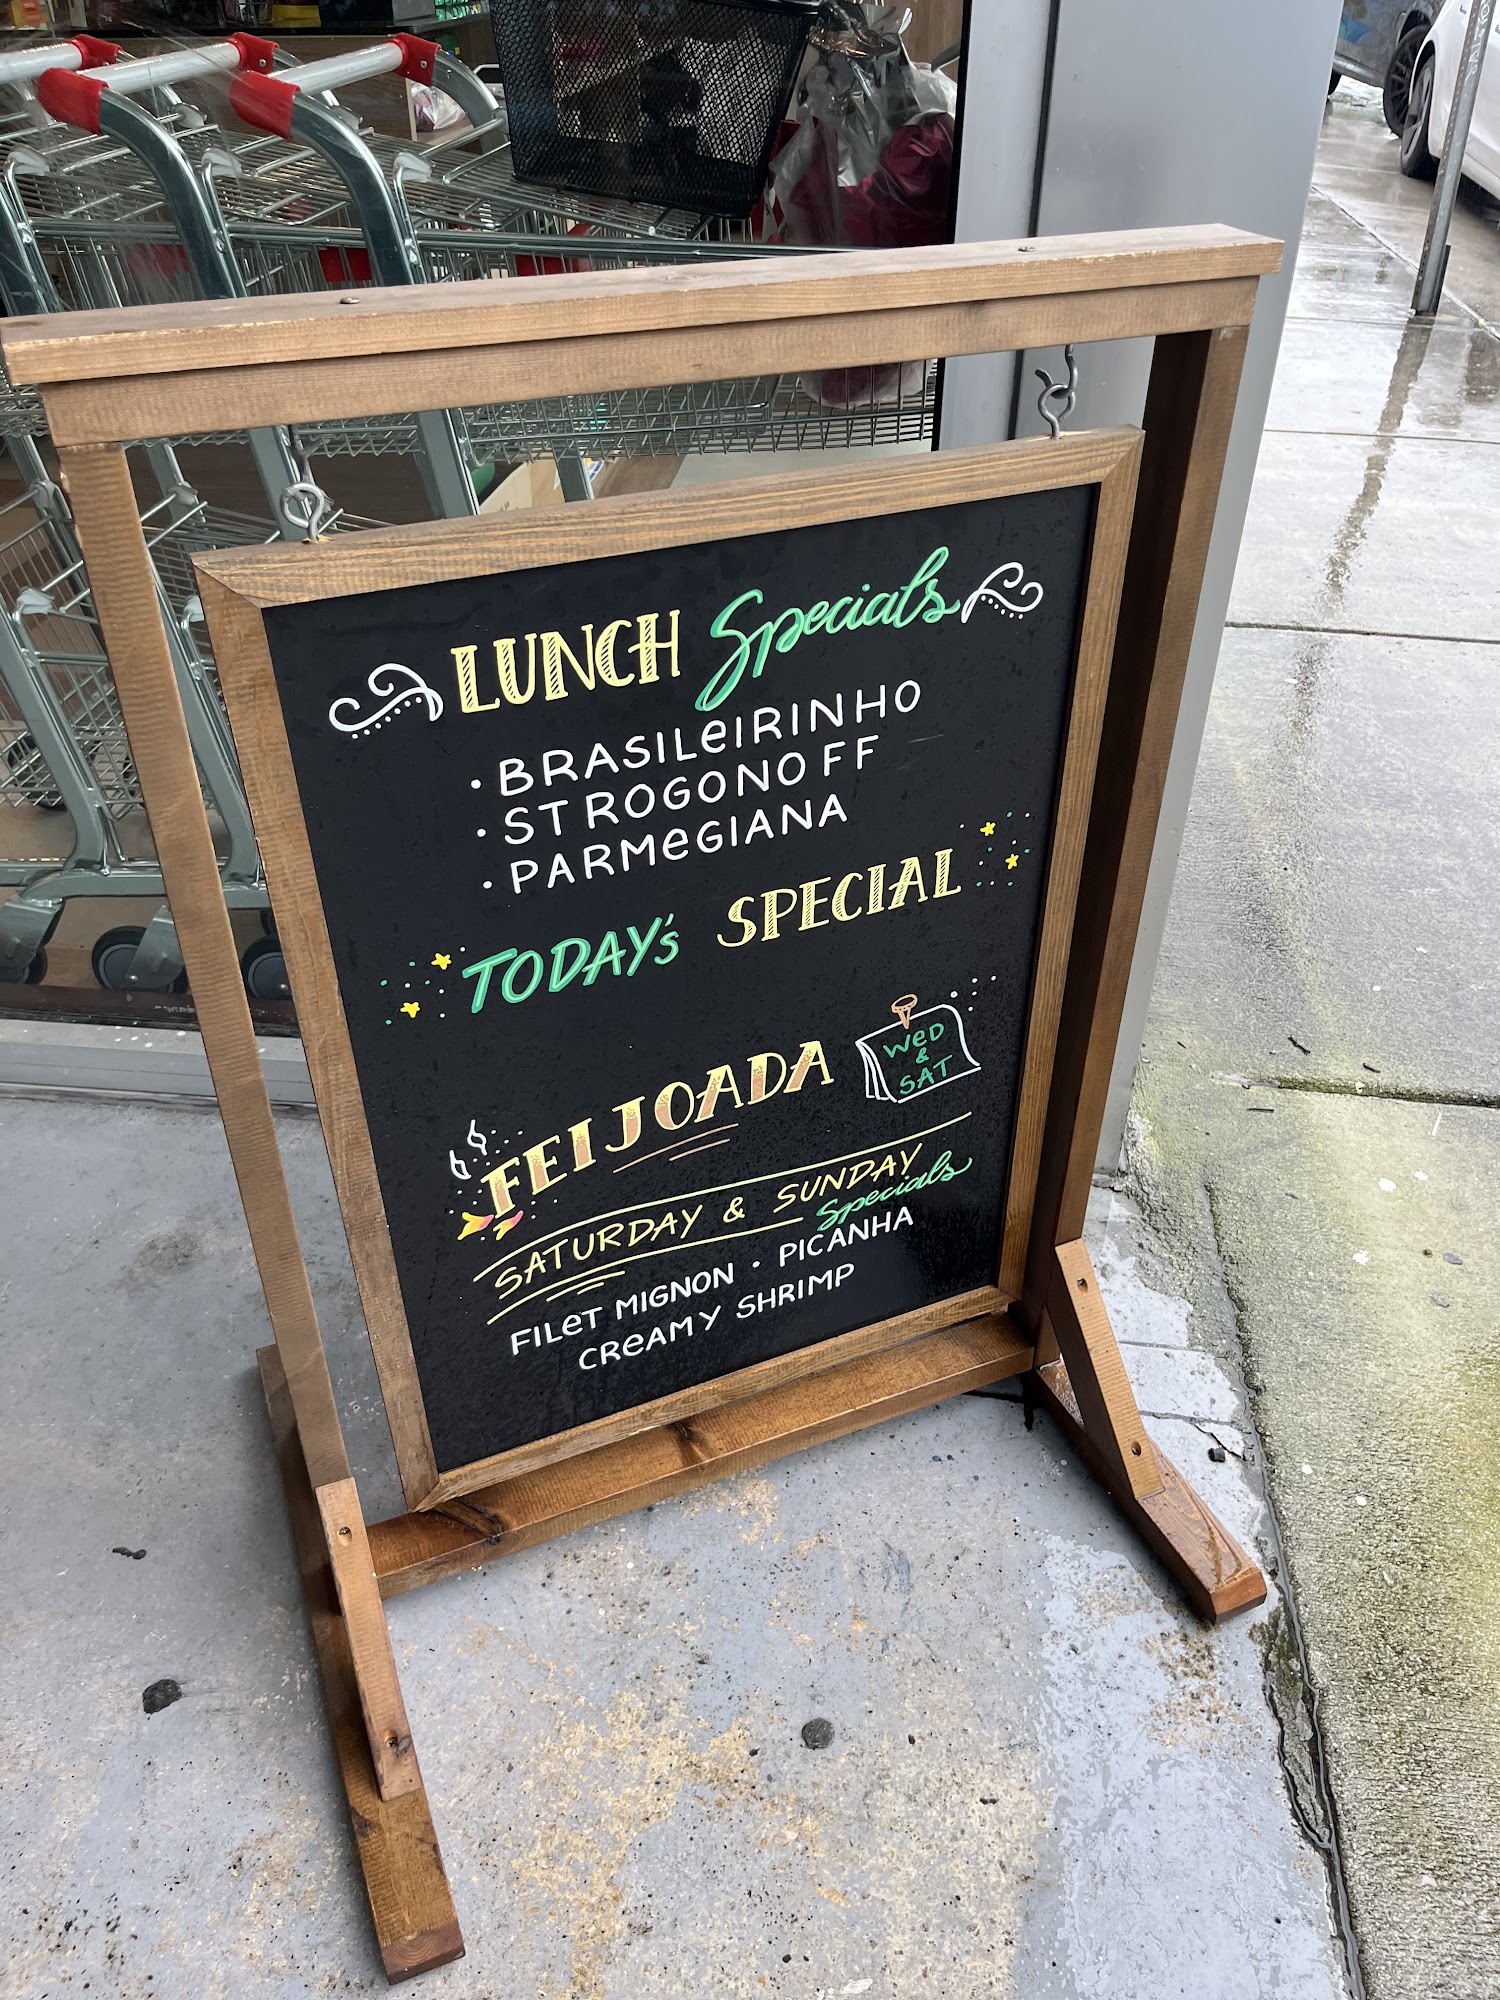 LUNCH Specials
· BRASILeIRINHO
· STROGONOFF
· PARMeGIANA
TODAY's SPECIAL
FEIJOADA
WeD
&
SAT
SATURDAY & SUNDAY
Specials
FILeT MIGNON · PICANHA
CReAMY SHRIMP